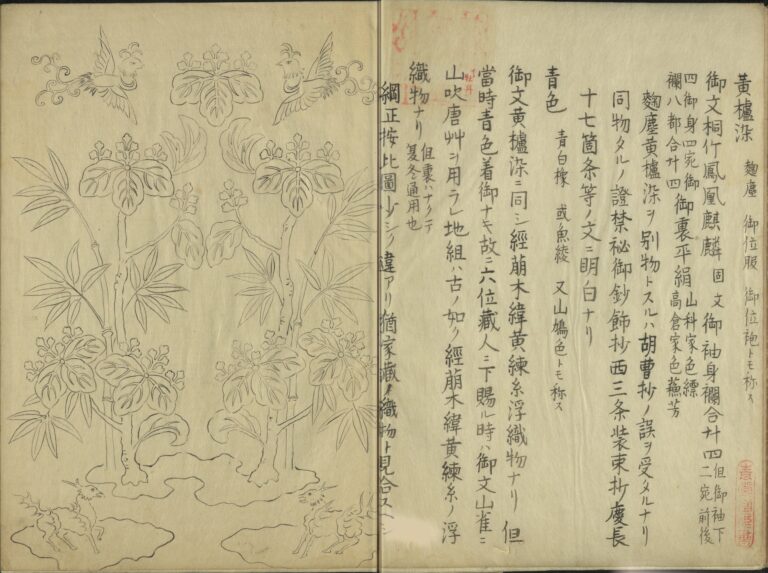 黄櫨染 麹塵 御位服 御位袍トモ称ス
御文桐竹鳳凰麒麟 固文 御袖身襴合廿四 但御袖下二宛前後
四御身四宛御襴八都合廿四 御裏平絹 山科家色縹 高倉家色蘓芳
麴塵黄櫨染ヲ別物トスルハ胡曹抄ノ誤ヲ受タルナリ
同物タルノ證禁祕御鈔飾抄西三条装束抄慶長
十七箇条等ノ文ニ明白ナリ
青色 青白橡 或魚綾 又山鳩色トモ称ス
御文黄櫨染ニ同シ經萠木緯黄練糸浮織物ナリ 但
當時青色着御ナキ故ニ六位蔵人ニ下賜ル時ハ御文山雀ニ
山吹唐艸ヲ用ラレ地組ハ古ノ如ク經萠木緯黄練糸ノ浮
織物ナリ 但裏ハナクテ夏冬通用也
綱正按比圖少シク違アリ猶家蔵ノ織物ト見合スヘシ